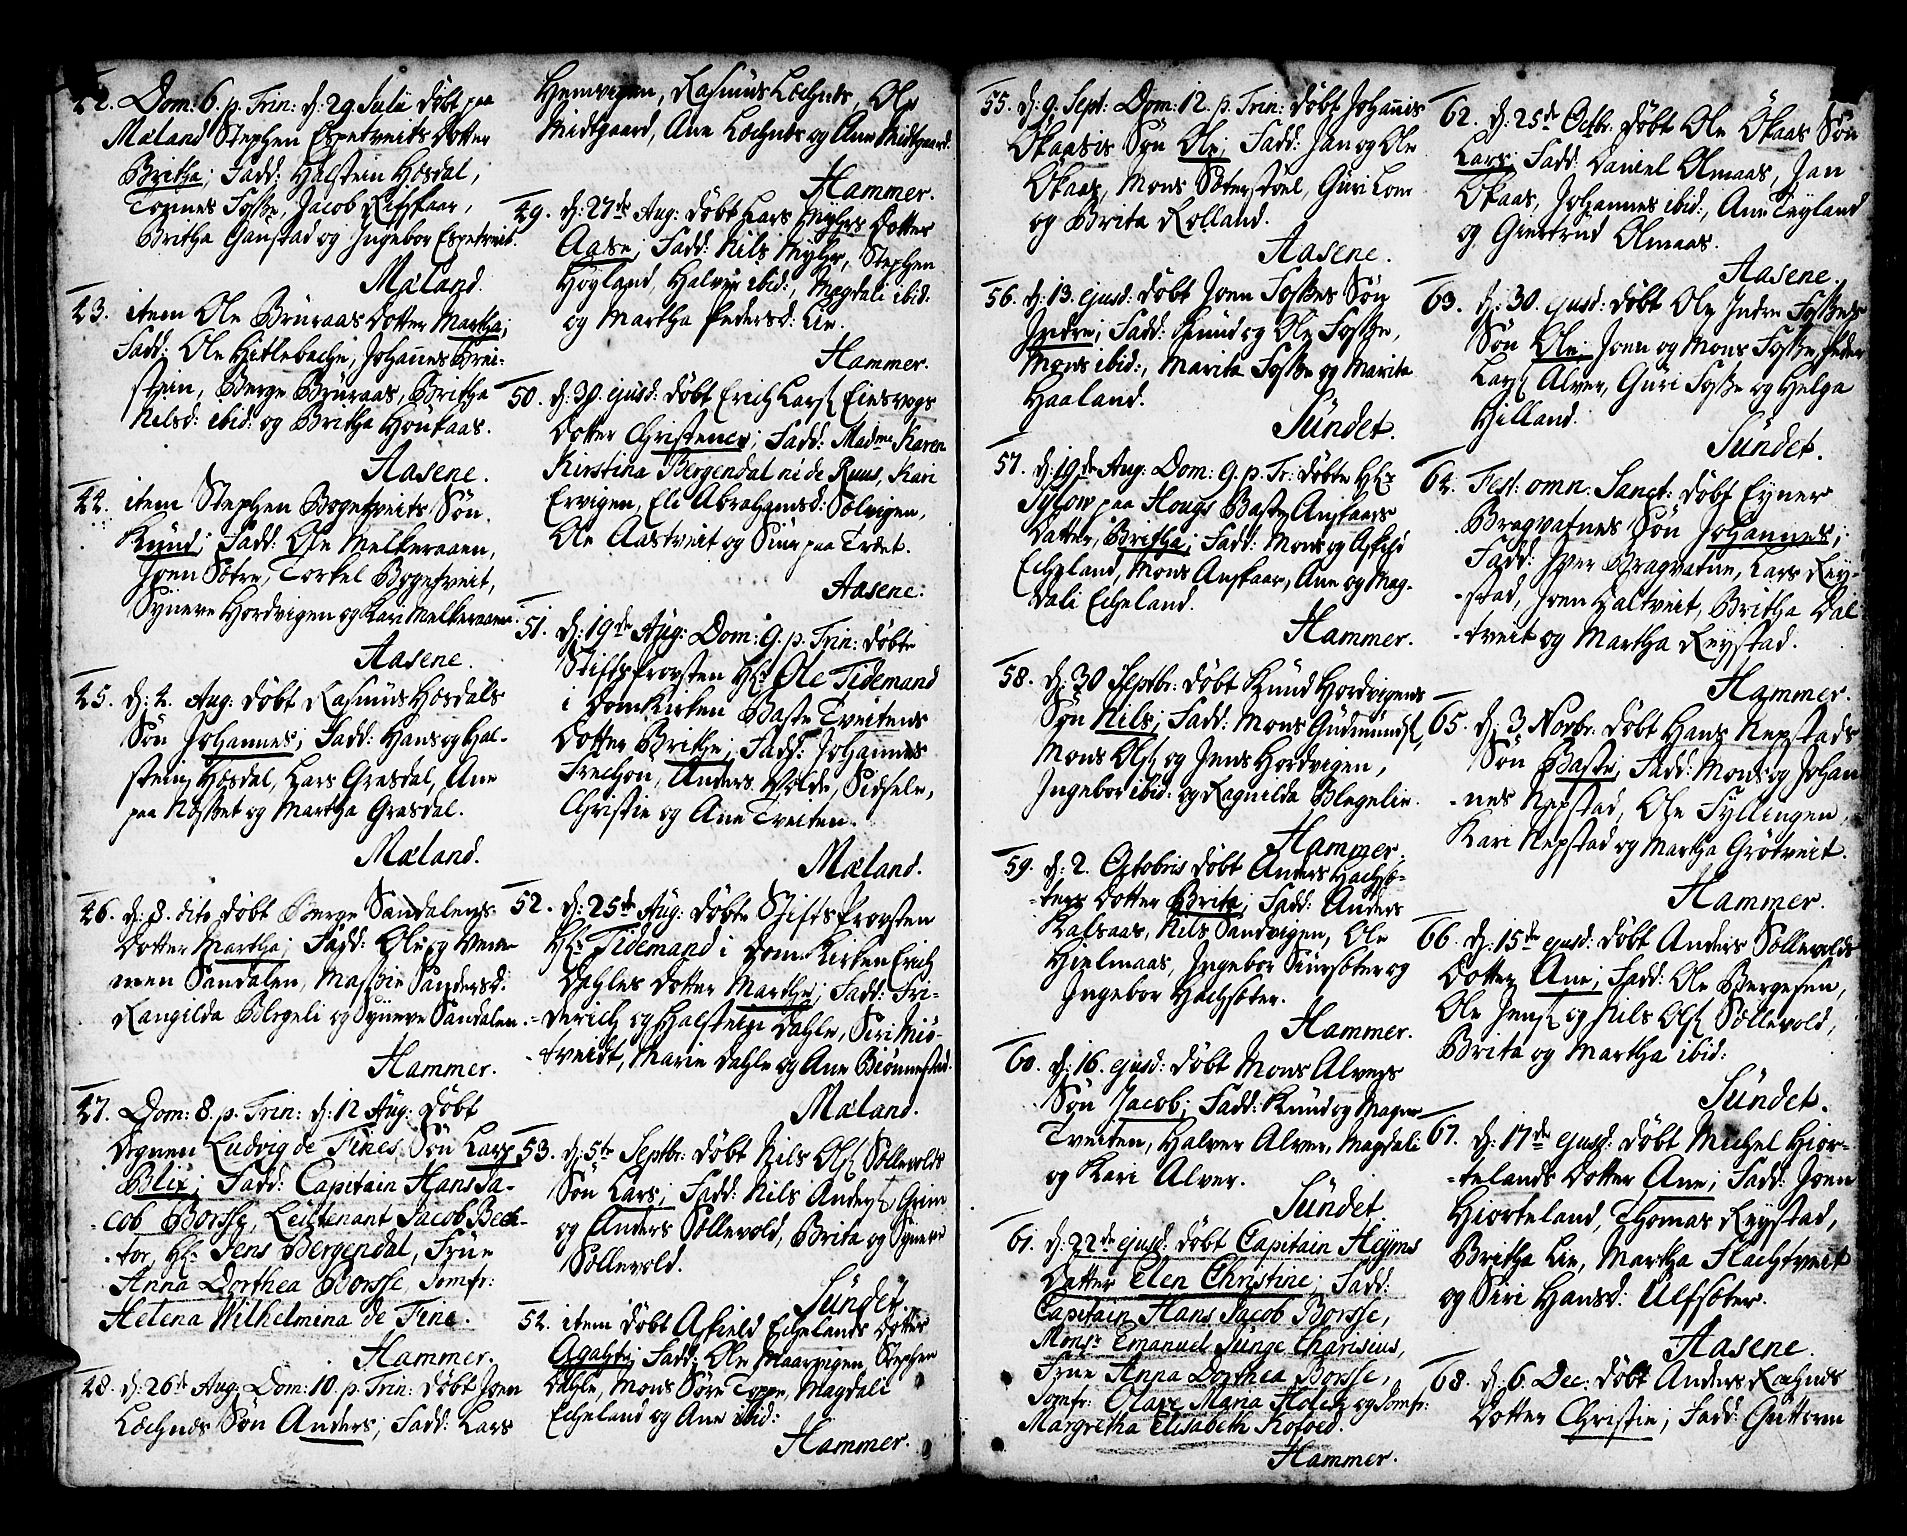 42. Dom: 6. p. Trin: d: 29 Julii døbt paa
Mæland Stephen Espetveits Dotter
Britha; Fadd: Halstein Hosdal,
Tormes Fosse, Jacob Rifskaar,
Britha Ganstad og Ingebor Espetveit.
Mæland.
43. item Ole Brüraas Dotter Martha;
Fadd: Ole Hitlebache, Johannes Brei-
stein, Berge Brüraas, Britha
Nilsd: ibid: og Britha Houkaas.
Aasene.
44. item Stephen Bogetveits Søn
Knud; Fadd: Ole Melkeraaen,
Joen Sætre, Torkel Bogetveit,
Synneve Hordvigen og Kari Melkeraaen.
Aasene.
45. d: 4. Aug: døbt Rasmus Hosdals
Søn Johannes; Fadd: Hans og Hal-
stein Hosdal, Lars Gresdal, Ane
paa Næsset og Martha Gresdal.
Mæland.
46. d: 8. dito døbt Berge Sandalens
Dotter Martha; Fadd: Ole og
Sandalen, Sandersd:
Rangilda Blegeli og Synneve Sandalen.
Hammer.
47. Dom: 8. p. Trin: d: 12 Aug: døbt
Ludvig de Fines Søn Lars
Blix; Fadd: Capitain Hans Ja-
cob Borsse, Leutenant Jacob Bech-
tor, Hr: Jens Bergendal, Frue
Anna Dorthea Borsse, Jomfr:
Helena Wilhelmina de Fine.
Hammer.
48. d: 26de Aug: Dom: 10. p. Trin: døbt Joen
Lochnes Søn Anders; Fadd: Lars
Hemvigen, Rasmus Lochnes, Ole
Midtgaard, Ane Lochnes og Ane Midtgaard.
Hammer.
49. d: 27de Aug: døbt Lars Myhres Dotter
Aase; Fadd: Nils Myhr, Stephen
Høyland, Halvor ibid:, Magdali ibid:
og Martha Pedersd: Lie.
Hammer.
50. d: 30 ejusd: døbt Erich Lars. Einsvogs
Dotter Christence; Fadd: Madme Karen
Kirstina Bergendal Ruus, Kari
Ervigen, Eli Abrahamsd: Sælvigen,
Ole Aastveit og Siur paa Trædet.
Aasene:
51. d: 19de Aug: Dom: 9. p. Trin: døbte
Stiftsprovsten Hr: Ole Tidemand
i Domkirken Baste Tveitens
Dotter Brithe; Fadd: Johannes
Frechon, Anders Volde, Sidsele,
Christie og Ane Tveiten.
Mæland.
52. d: 25de Aug: døbte Stifts Provsten
Hr: Tidemand i Dom-Kirken Erich
Dahles Dotter Marthe; Fadd: Fri-
derich og Halstein Dahle, Siri Mio-
tveidt, Marie Dahle og Ane Biønnestad.
Mæland.
53. d: 5te Septbr: døbt Nils Ols. Søllevolds
Søn Lars; Fadd: Nils Anders. Grim
og Anders Søllevold, Brita og Synneve
Søllevold.
Sündet.
54. item døbt Askield Echelands Dotter
Agathe; Fadd: Ole Maarvigen, Stephen
Dahle, Mons Søre Toppe, Magdali
Echeland og Ane ibid:
Hammer.
55. d: 9. Sept: Dom: 12. p. Trin: døbt Johannis
Økaasis Søn Ole; Fadd: Jan og Ole
Økaas, Mons Sæterstøel, Guri Lone
og Brita Rolland.
Aasene.
56. d: 13. ejusd: døbt Joen Fosses Søn
Indre; Fadd: Knud og Ole Fosse,
Mons ibid:, Marita Fosse og Marita
Haaland.
Sündet.
57. d: 19de Aug: Dom: 9. p. Tr: døbte Hr:
Sylow paa Hougs Baste Anskaars
Datter, Britha; Fadd: Mons og Askild
Echeland, Mons Anskaar, Ane og Mag-
dali Echeland.
Hammer.
58. d: 30 Septbr: døbt Knud Hordvigens
Søn Nils; Fadd: Mons Gudmunds.,
Mons Ols. og Jens Hordvigen,
Ingebor ibid: og Ragnilda Blegelie.
Hammer.
59. d: 2. Octobris døbt Anders Hachsø-
ters Dotter Brita; Fadd: Anders
Kalsaas, Nils Sandvigen, Ole
Hielmaas, Ingebor Siursøter og
Ingebor Hachsøter.
Hammer.
60. d: 16. ejusd: døbt Mons Alvers
Søn Jacob; Fadd: Knud og Magne
Tveiten, Halver Alver, Magdali
og Kari Alver.
Sündet.
61. d: 22de ejusd: døbt Capitain Heyms
Datter Elen Christine; Fadd:
Capitain Hans Jacob Borsse,
Monsr: Emanuel Junge Charisius,
Frue Anna Dorthea Borsse,
Jomfr: Clare Maria Holch og Jomfr:
Margretha Elisabeth Kofoed.
Hammer.
62. d: 25de Octbr: døbt Ole Økaas Søn
Lars; Fadd: Daniel Olmaas, Jan
Økaas, Johannes ibid:, Ane Teyland
og Giertrud Olmaas.
Aasene.
63. d: 30. ejusd: døbt Ole Indre Fosses
Søn Ole; Joen og Mons Fosse, Peder
Lars. Alver, Guri Fosse og Helga
Hilland.
Sündet.
64. Fest: omn: Sanct: døbt Eyner
Bragvatnes Søn Johannes;
Fadd: Iver Bragvatne, Lars Rey-
stad, Joen Daltveit, Britha Dal-
tveit og Martha Reystad.
Hammer.
65. d: 3. Novbr: døbt Hans Nepstads
Søn Baste; Fadd: Mons og Johan-
nes Nepstad, Ole Fyllingen,
Kari Nepstad og Martha Grøtveit.
Hammer.
66. d: 15de ejusd: døbt Anders Søllevolds
Dotter Ane; Fadd: Ole Bergesen,
Ole Jens. og Nils Ols. Søllevold,
Brita og Martha ibid:
Sündet.
67. d: 17de ejusd: døbt Michel Hior-
telands Dotter Ane; Fadd: Joen
Hiorteland, Thomas Reystad,
Britha Lie, Martha Flachtveit
og Siri Hansd: Ulfsøter.
Aasene.
68. d: 6. Dec: døbt Anders Rochnes
Dotter Christie; Fadd: Guttorm